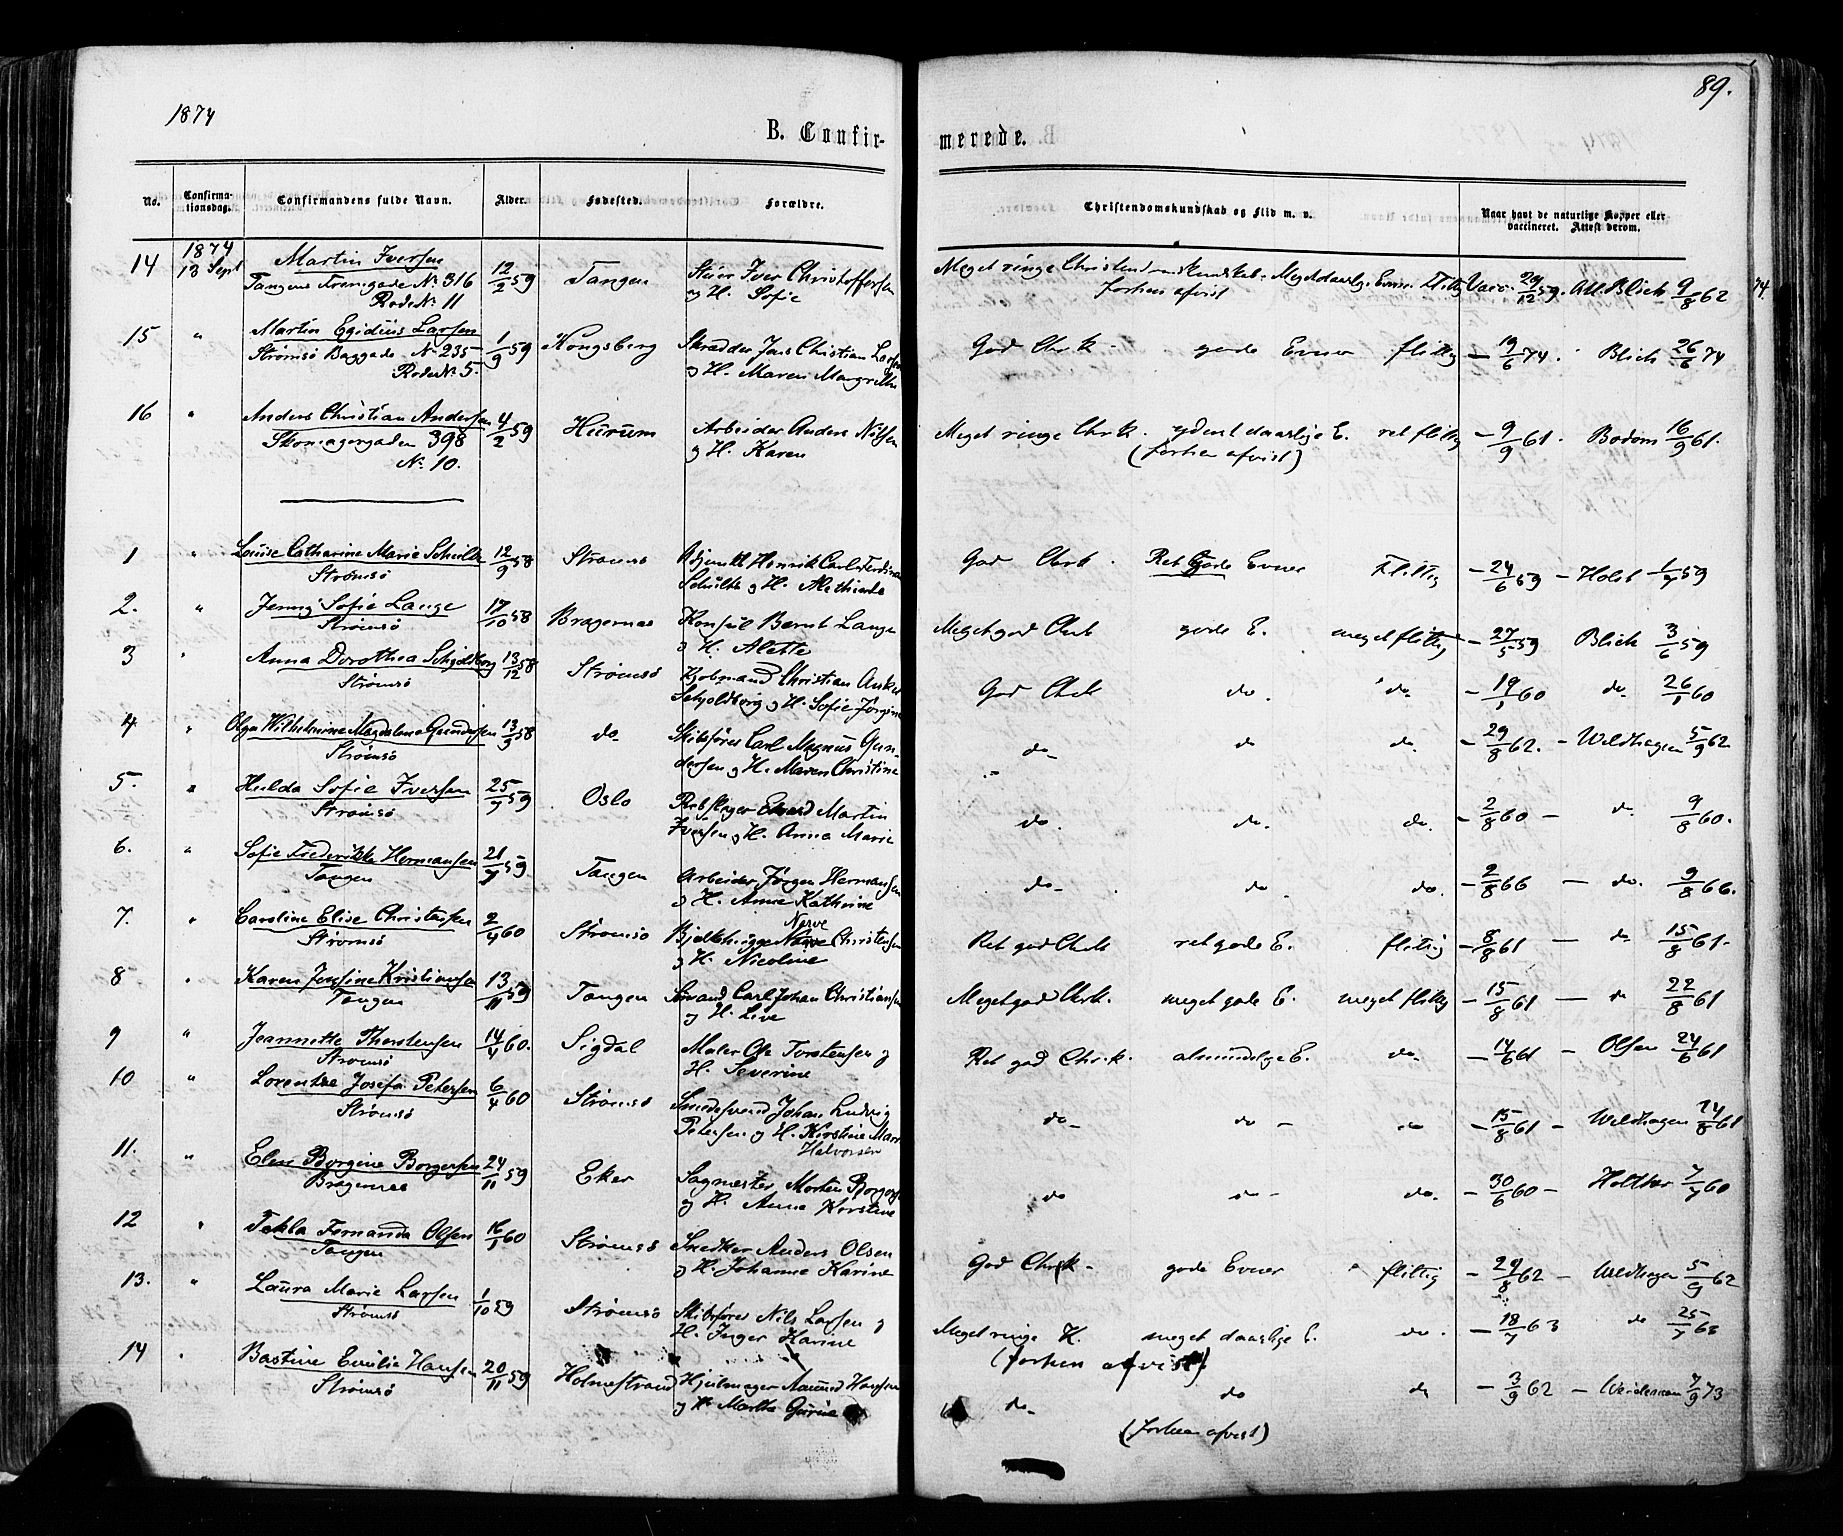 1874
89.
B. Confirmerede.
No. Confirmationsdag. Confirmandens fulde Navn. Alder. Fødested. Forældre. Christendomskundskab og Flid m. v. Naar havt de naturlige Kopper eller vaccineret. Attest derom.
14 1874 13 Sept Martin Iversen 12/2 59 Tangen Iver Christoffersen Meget ringe Evner Flittig Vacc. 29/12 59. Att. Blich 9/8 62 74
Tangens No 316 og H. Sofie forhen afvist
Rode No 11
15 " Martin Egidius Larsen 1/9 59 Kongsberg Skrædder Jens Christian Larsen God Chrk - gode Evner flittig - 19/6 74 Blich 26/6 74
Strømsø Baggade No 235 og H. Maren Margrethe
Rode No 5.
16 " Anders Christian Andersen 4/2 59 Hurum Arbeider Anders Nilsen Meget ringe Chrk. ydent daarlige E. ret flittig - 9/9 61. Bodom 16/9 61.
398 og H. Karen (forhen afvist)
No. 10.
1 " Louise Catharine Marie Schulke 12/9 58 Strømsø Henrik Carl God Chrk. Ret Gode Evner Flittig - 24/6 59 - Holst 1/7 59
Strømsø og H. Mathinda
2. " Jenny Sofie Lange 17/10 58 Bragernes Konsul Bernt Lange Meget god Chrk gode E. meget flittig - 27/5 59 Blich 3/6 59
Strømsø og H. Alette
3 " Anna Dorothea Schjoldborg 13/12 58 Strømsø Kjøbmand Christian Anker God Chrk do. do. - 19/1 60 do. 26/1 60
Strømsø Schjoldborg og H. Sofie Jørgine
4. " Olga Wilhelmine Magdalena Gundersen 13/9 58 do Skibsfører Carl Magnus Gun- do do do. - 29/8 62. - Weldhagen 5/9 62
Strømsø dersen og H. Maren Christine
5. " Hulda Sofie Iversen 25/7 59 Oslo Rebslager Edvard Martin do. do. do. - 2/8 60 - do. 9/8 60.
Strømsø Iversen og H. Anna Marie
6. " Sofie Frederikke Hermansen 21/7 59 Tangen Arbeider Jørgen Hermansen do- do do. - 2/8 66 - do. 9/8 66.
Tangen og H. Anne Kathrine
7. " Caroline Elise Christensen 2/4 60 Strømsø Bjelkehugger Nerve Christensen Ret god Chrk ret gode E. flittig - 8/8 61 - do 15/8 61.
Strømsø og H. Nicoline
8 " Karen Josefine Kristiansen 13/11 59 Tangen Carl Johan Christiansen Meget god Chrk. meget gode E. meget flittig - 15/8 61 - do 22/8 61
Tangen og H. Live
9 " Jeannette Thorstensen 14/4 60. Sigdal Maler Ole Torstensen og Ret god Chrk. almindelige E. do. - 14/6 61 - Olsen 24/6 61
Strømsø H. Severine
10 " Lorentze Josefa Petersen 6/4 60 Strømsø Smedesvend Johan Ludvig do- do - do - 15/8 61 - Weldhagen 24/8 61
Strømsø Petersen og H. Kirstine Marie
Halvorsen
11. " Elise Borgine Borgersen 24/11 59 Eker Sagmester Morten Borgersen do do - do. - 30/6 60 - Holther 7/7 60
Bragernes og H. Anne Kirstine
12 " Tekla Fernanda Olsen 16/1 60 Strømsø Snedker Anders Olsen God Chrk - gode Evner flittig - 29/8 62 - Weldhagen 5/9 62
Tangen og H. Johanne Karine
13. " Laura Marie Larsen 1/10 59 Strømsø Skibsfører Nils Larsen og Meget ringe K. meget daarlige E. do. - 18/7 63 do 25/7 63
Strømsø H. Inger Karine (forhen afvist)
14 " Bastine Emilie Hansen 20/11 59 Holmestrand Hjulmager Amund Hansen do- do do - 3/9 62 - Weideman 7/9 73
Strømsø og H. Marthe Gurine (forhen afvist)